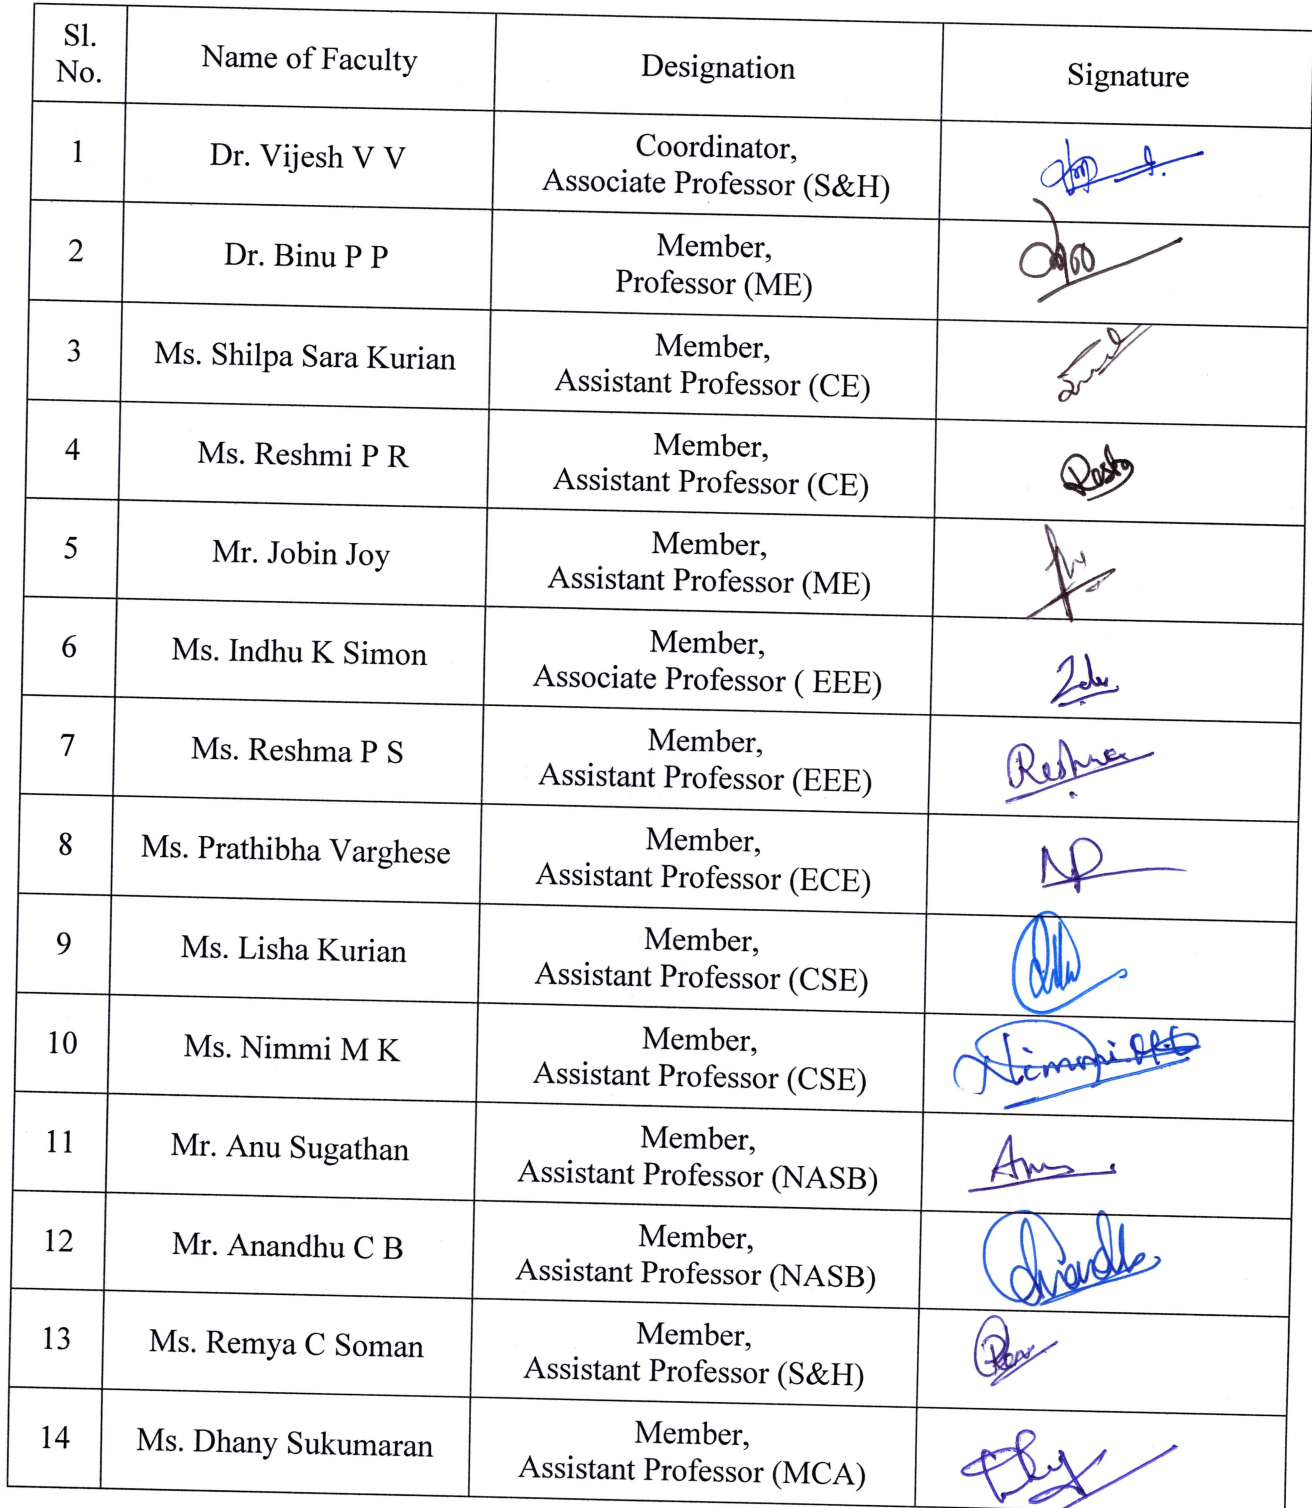 Sl.
No.
Name of Faculty
Designation
Signature
1
Dr. Vijesh V V
Coordinator,
Associate Professor (S&H)
2
Dr. Binu P P
Member,
Professor (ME)
3
Ms. Shilpa Sara Kurian
Member,
Assistant Professor (CE)
4
Ms. Reshmi P R
Member,
Assistant Professor (CE)
5
Mr. Jobin Joy
Member,
Assistant Professor (ME)
6
Ms. Indhu K Simon
Member,
Associate Professor ( EEE)
7
Ms. Reshma P S
Member,
Assistant Professor (EEE)
Reshma
8
Ms. Prathibha Varghese
Member,
Assistant Professor (ECE)
9
Ms. Lisha Kurian
Member,
Assistant Professor (CSE)
10
Ms. Nimmi M K
Member,
Assistant Professor (CSE)
Nimmi M K
11
Mr. Anu Sugathan
Member,
Assistant Professor (NASB)
12
Mr. Anandhu C B
Member,
Assistant Professor (NASB)
13
Ms. Remya C Soman
Member,
Assistant Professor (S&H)
14
Ms. Dhany Sukumaran
Member,
Assistant Professor (MCA)